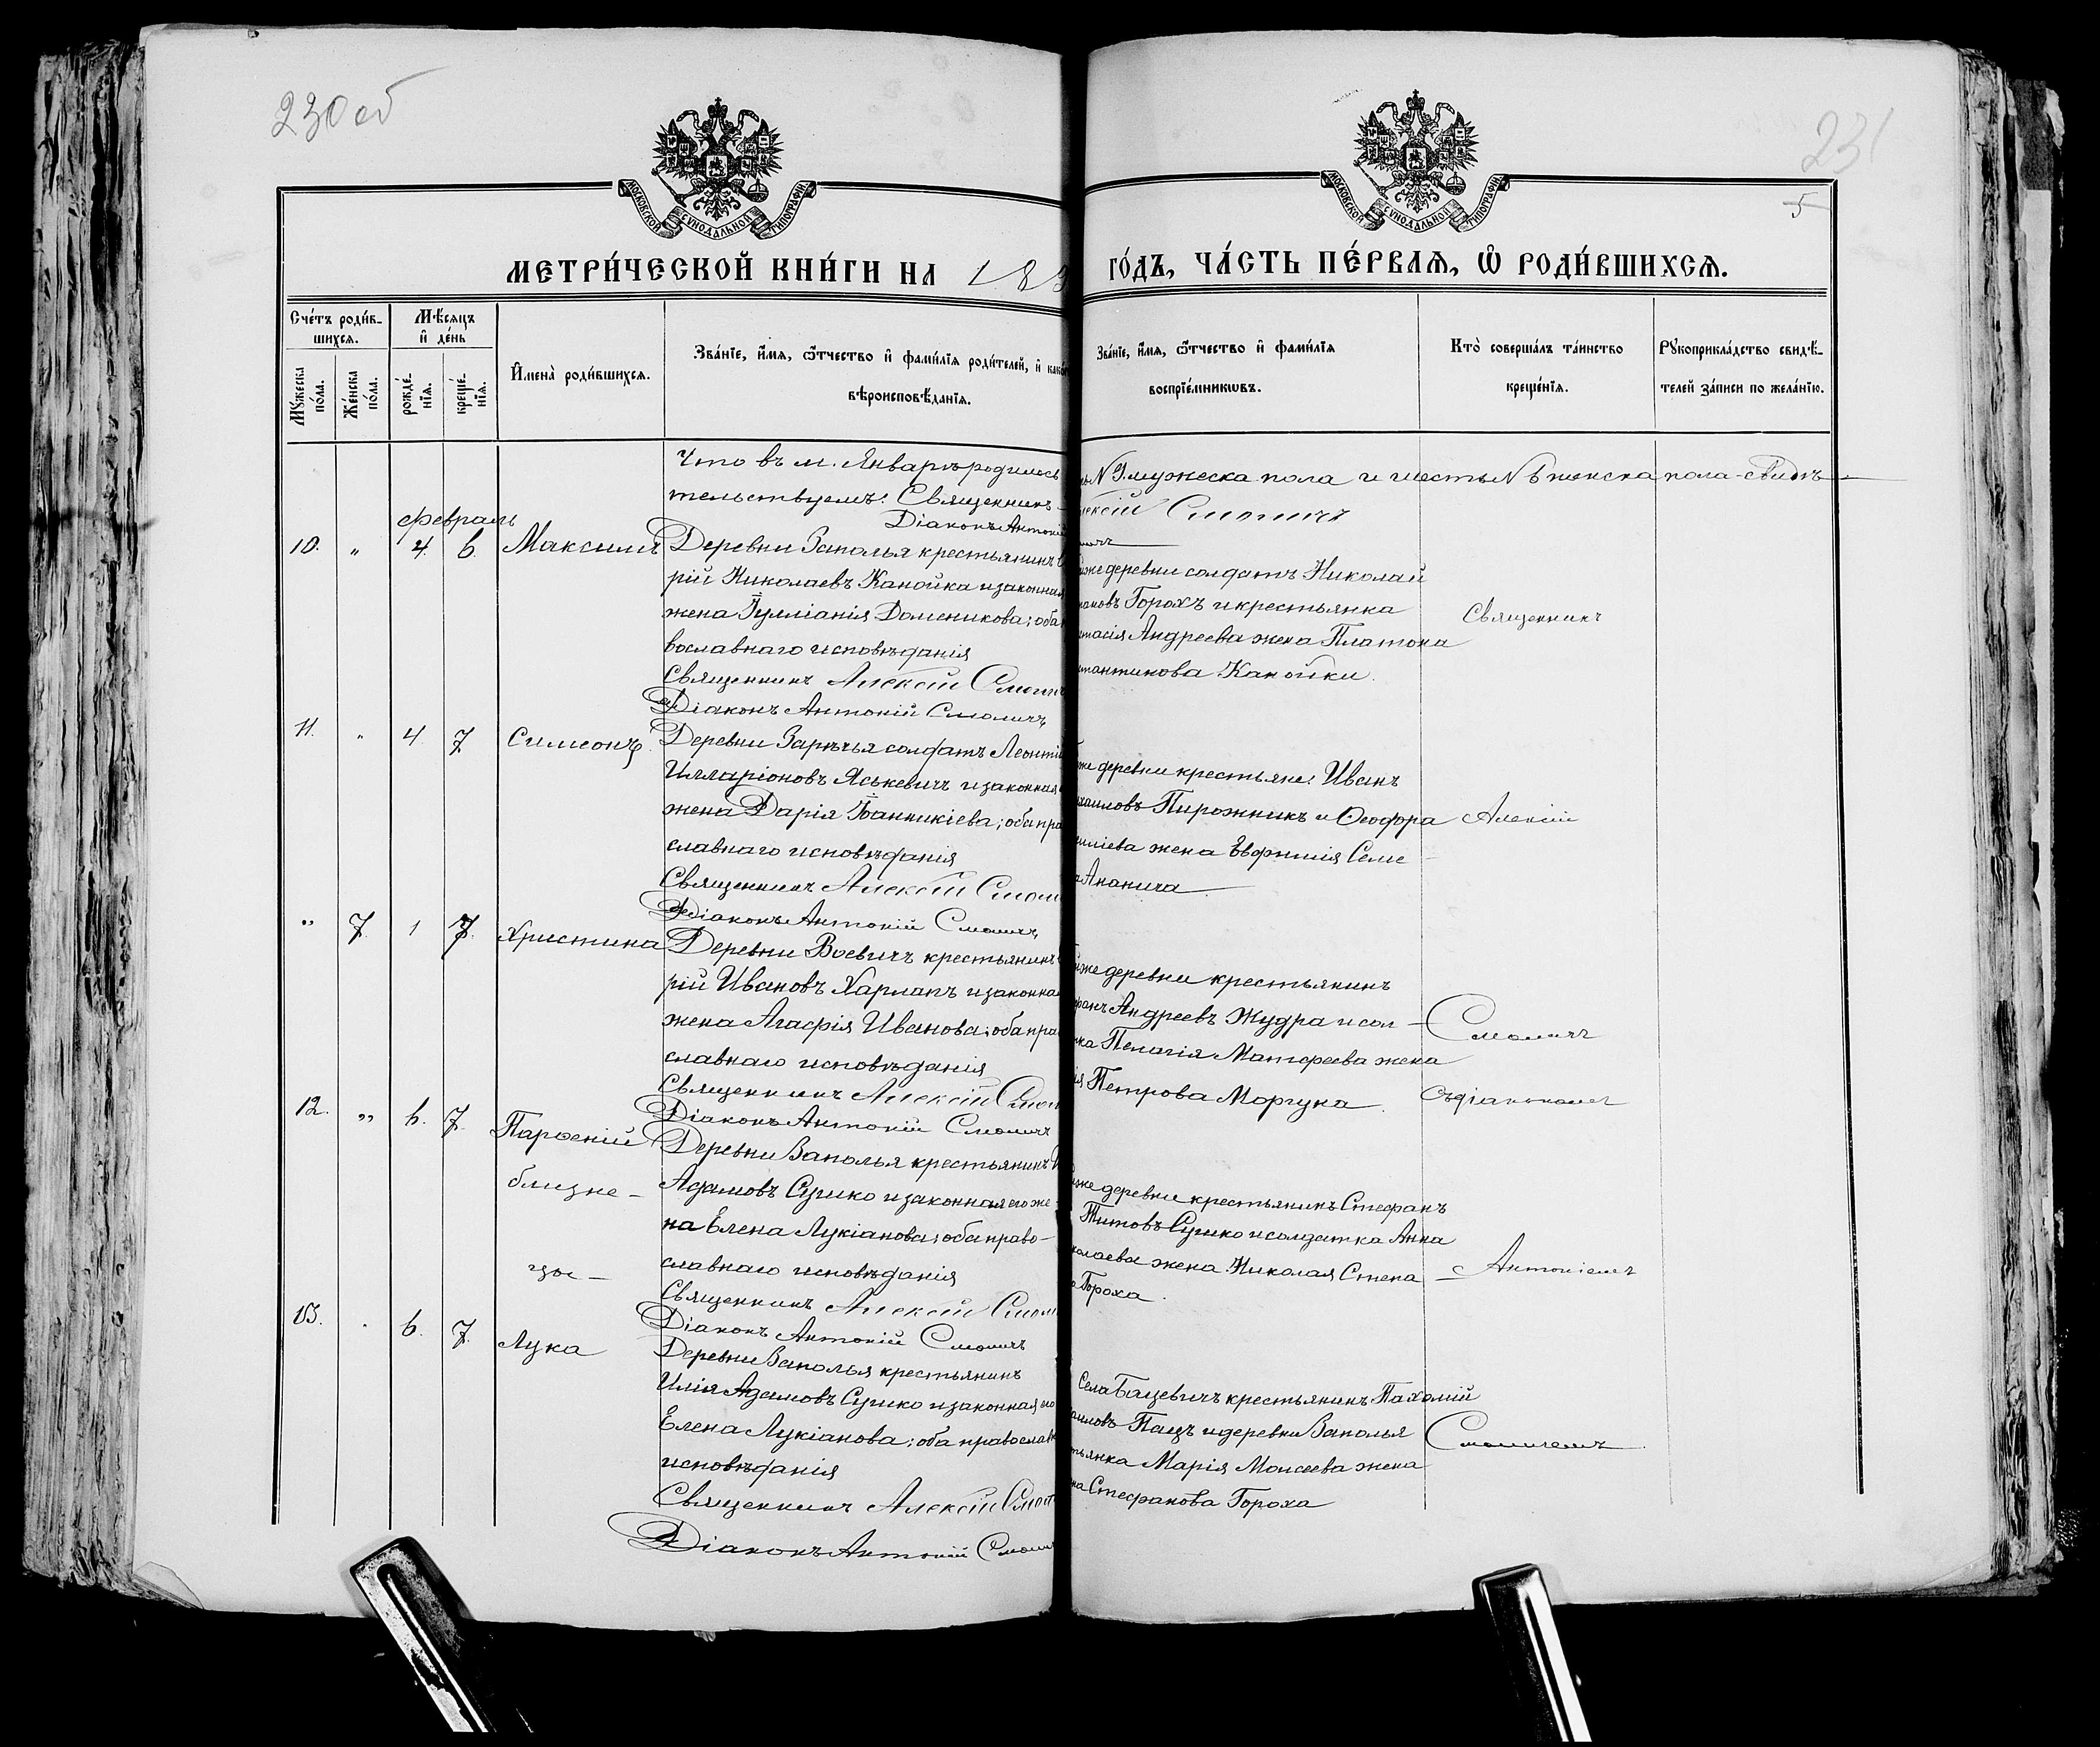 230 об
231
5
МОСКОВСКОЙ СѴНОДАЛЬНОЙ ТИПОГРАФІИ
МОСКОВСКОЙ СѴНОДАЛЬНОЙ ТИПОГРАФІИ
МЕТРИ́ЧЕСКОЙ КНИ́ГИ НА 189
ГО́ДЪ, ЧА́СТЬ ПЕ́РВАѦ, Ѡ РОДИ́ВШИХСѦ.
Сче́тъ роди́в-
шихсѧ.
Мꙋ́жеска по́ла.
Же́нска по́ла.
Мѣ́сѧцъ и де́нь
рожде́-нїѧ.
креще́-нїѧ.
И҆мена̀ роди́вшихсѧ.
Зва́нїе, и҆́мѧ, ѻ҆́тчество и҆ фами́лїѧ роди́телей, и҆ како
вѣроисповѣ́данїѧ.
Зва́нїе, и҆́мѧ, ѻ҆́тчество и҆ фами́лїѧ
воспрїе́мникѡвъ.
Кто̀ соверша́лъ та́инство
креще́нїѧ.
Рꙋкоприкла́дство свидѣ́-
телей за́писи по жела́нїю.
Что въ м. Январѣ родилось
тельствуемъ: Священникъ
Діаконъ Антоній
N 9 мужеска пола и шесть N 6 женска пола - свидѣ
ексій Смоличъ
Февраль
10. " 4. 6. Максимъ
Деревни Заполья крестьянинъ
рій Николаевъ Канойка и законная
жена Іуліанія Доменикова; оба
вославнаго исповѣданія
Священникъ Алексій Смолич
Діаконъ Антоній Смоличъ
же деревни солдатъ Николай
Горохъ и крестьянка
тасія Андреева жена Платона
стантинова Канойки.
Священникъ
11. " 4. 7. Симеонъ
Деревни Зарѣчья солдатъ Леонтій
Илларіоновъ Яськевичъ и законная
жена Дарія Іоанникіева; оба пра
славнаго исповѣданія
Священникъ Алексій Смол
Діаконъ Антоній Смоличъ
же деревни крестьяне: Иванъ
хаиловъ Пирожникъ и Ѳеодора
силіева жена Евфимія Семе
Ананича
Алексій
" 7. 1 7. Христина
Деревни Воевичъ крестьянинъ
рій Ивановъ Харлапъ и законна
жена Агафія Иванова; оба пра
славнаго исповѣданія
Священникъ Алексій Смол
Діаконъ Антоній Смоличъ
же деревни крестьянинъ
фанъ Андреевъ Жудра и сол-
ка Пелагія Матѳеева жена
Петрова Моргуна.
Смоличъ
съ діакономъ
12. " 6. 7. Парѳеній
близне-
цы-
Деревни Заполья крестьянинъ И
Адамовъ Сушко и законная его же-
на Елена Лукіанова; оба право-
славнаго исповѣданія
Священникъ Алексій Смол
Діаконъ Антоній Смоличъ
же деревни крестьянинъ Стефанъ
Титовъ Сушко и солдатка Анна
колаева жена Николая Степа-
Гороха.
Антоніемъ
13. 6. 7. Лука
Деревни Заполья крестьянинъ
Илія Адамовъ Сушко и законная его
Елена Лукіанова; оба православ
исповѣданія
Священникъ Алексій Смол
Діаконъ Антоній Смолич
Села Бацевичъ крестьянинъ Пахомій
Пацъ и деревни Заполья
тьянка Марія Моисеева жена
на Стефанова Гороха
Смоличемъ